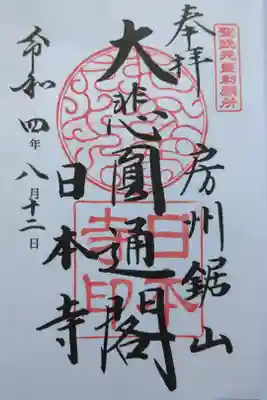 聖武天皇勅願所
奉拝
房州鋸山
大悲圓通閣
日本寺
令和四年八月十二日
日本寺印